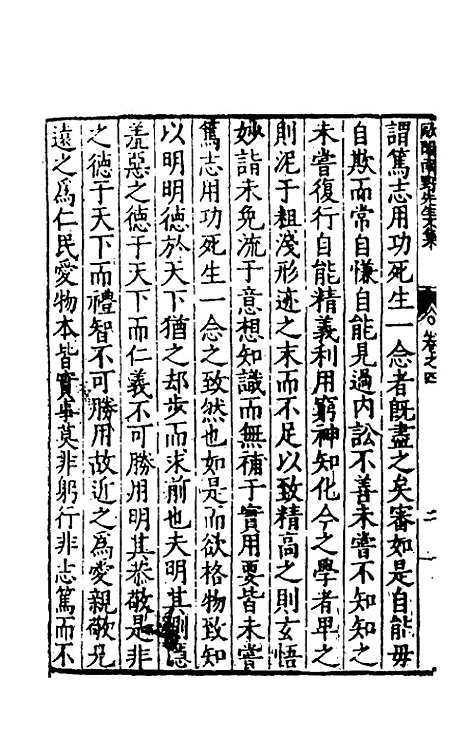 歐陽南野先生文集 卷之四 二
謂篤志用功死生一念者旣盡之矣審如是自能毋
自欺而常自慊自能見過內訟不善未嘗不知知之
未嘗復行自能精義利用窮神知化今之學者卑之
則泥于粗淺形迹之末而不足以致精高之則玄悟
妙詣未免流于意想知識而無補于實用要皆未嘗
篤志用功死生一念之致然也如是而欲格物致知
以明明德於天下猶之却步而求前也夫明其惻隱
羞惡之德于天下而仁義不可勝用明其恭敬是非
之德于天下而禮智不可勝用故近之爲愛親敬兄
遠之爲仁民愛物本皆實事莫非躬行非志篤而不